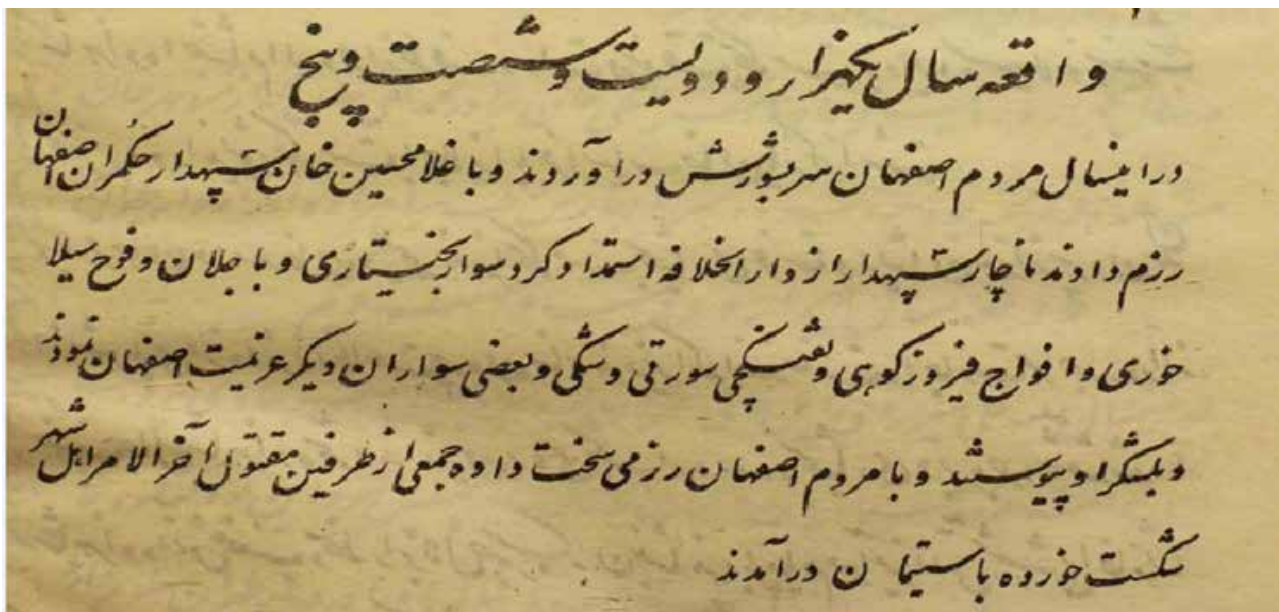 واقعه سال یکهزار و دویست و شصت و پنج
در اینسال مردم اصفهان سر بشورش درآوردند و با غلامحسین خان سپهدار حکمران اصفهان
رزم دادند ناچار سپهدار از دار الخلافه استمداد کرد سوار بختیاری و باجلان و فوج سیلا
خوری و افواج فیروزکوهی و تفنگچی سورتی و سکی و بعضی سواران دیگر عزیمت اصفهان نمودند
و بلشگر او پیوستند و با مردم اصفهان رزمی سخت داده جمعی از طرفین مقتول آخر الامر اهل شهر
شکست خورده باستیمان درآمدند